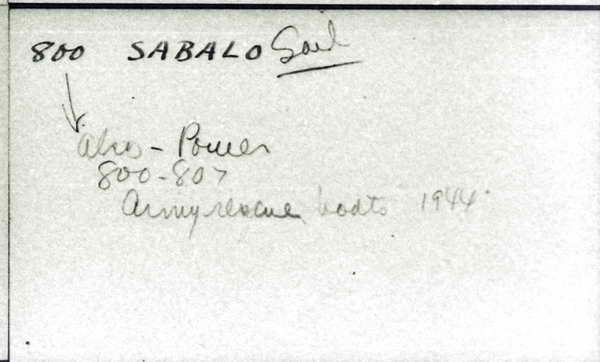 800 SABALO Sail
also - Power
800-807
Army rescue boats 1944